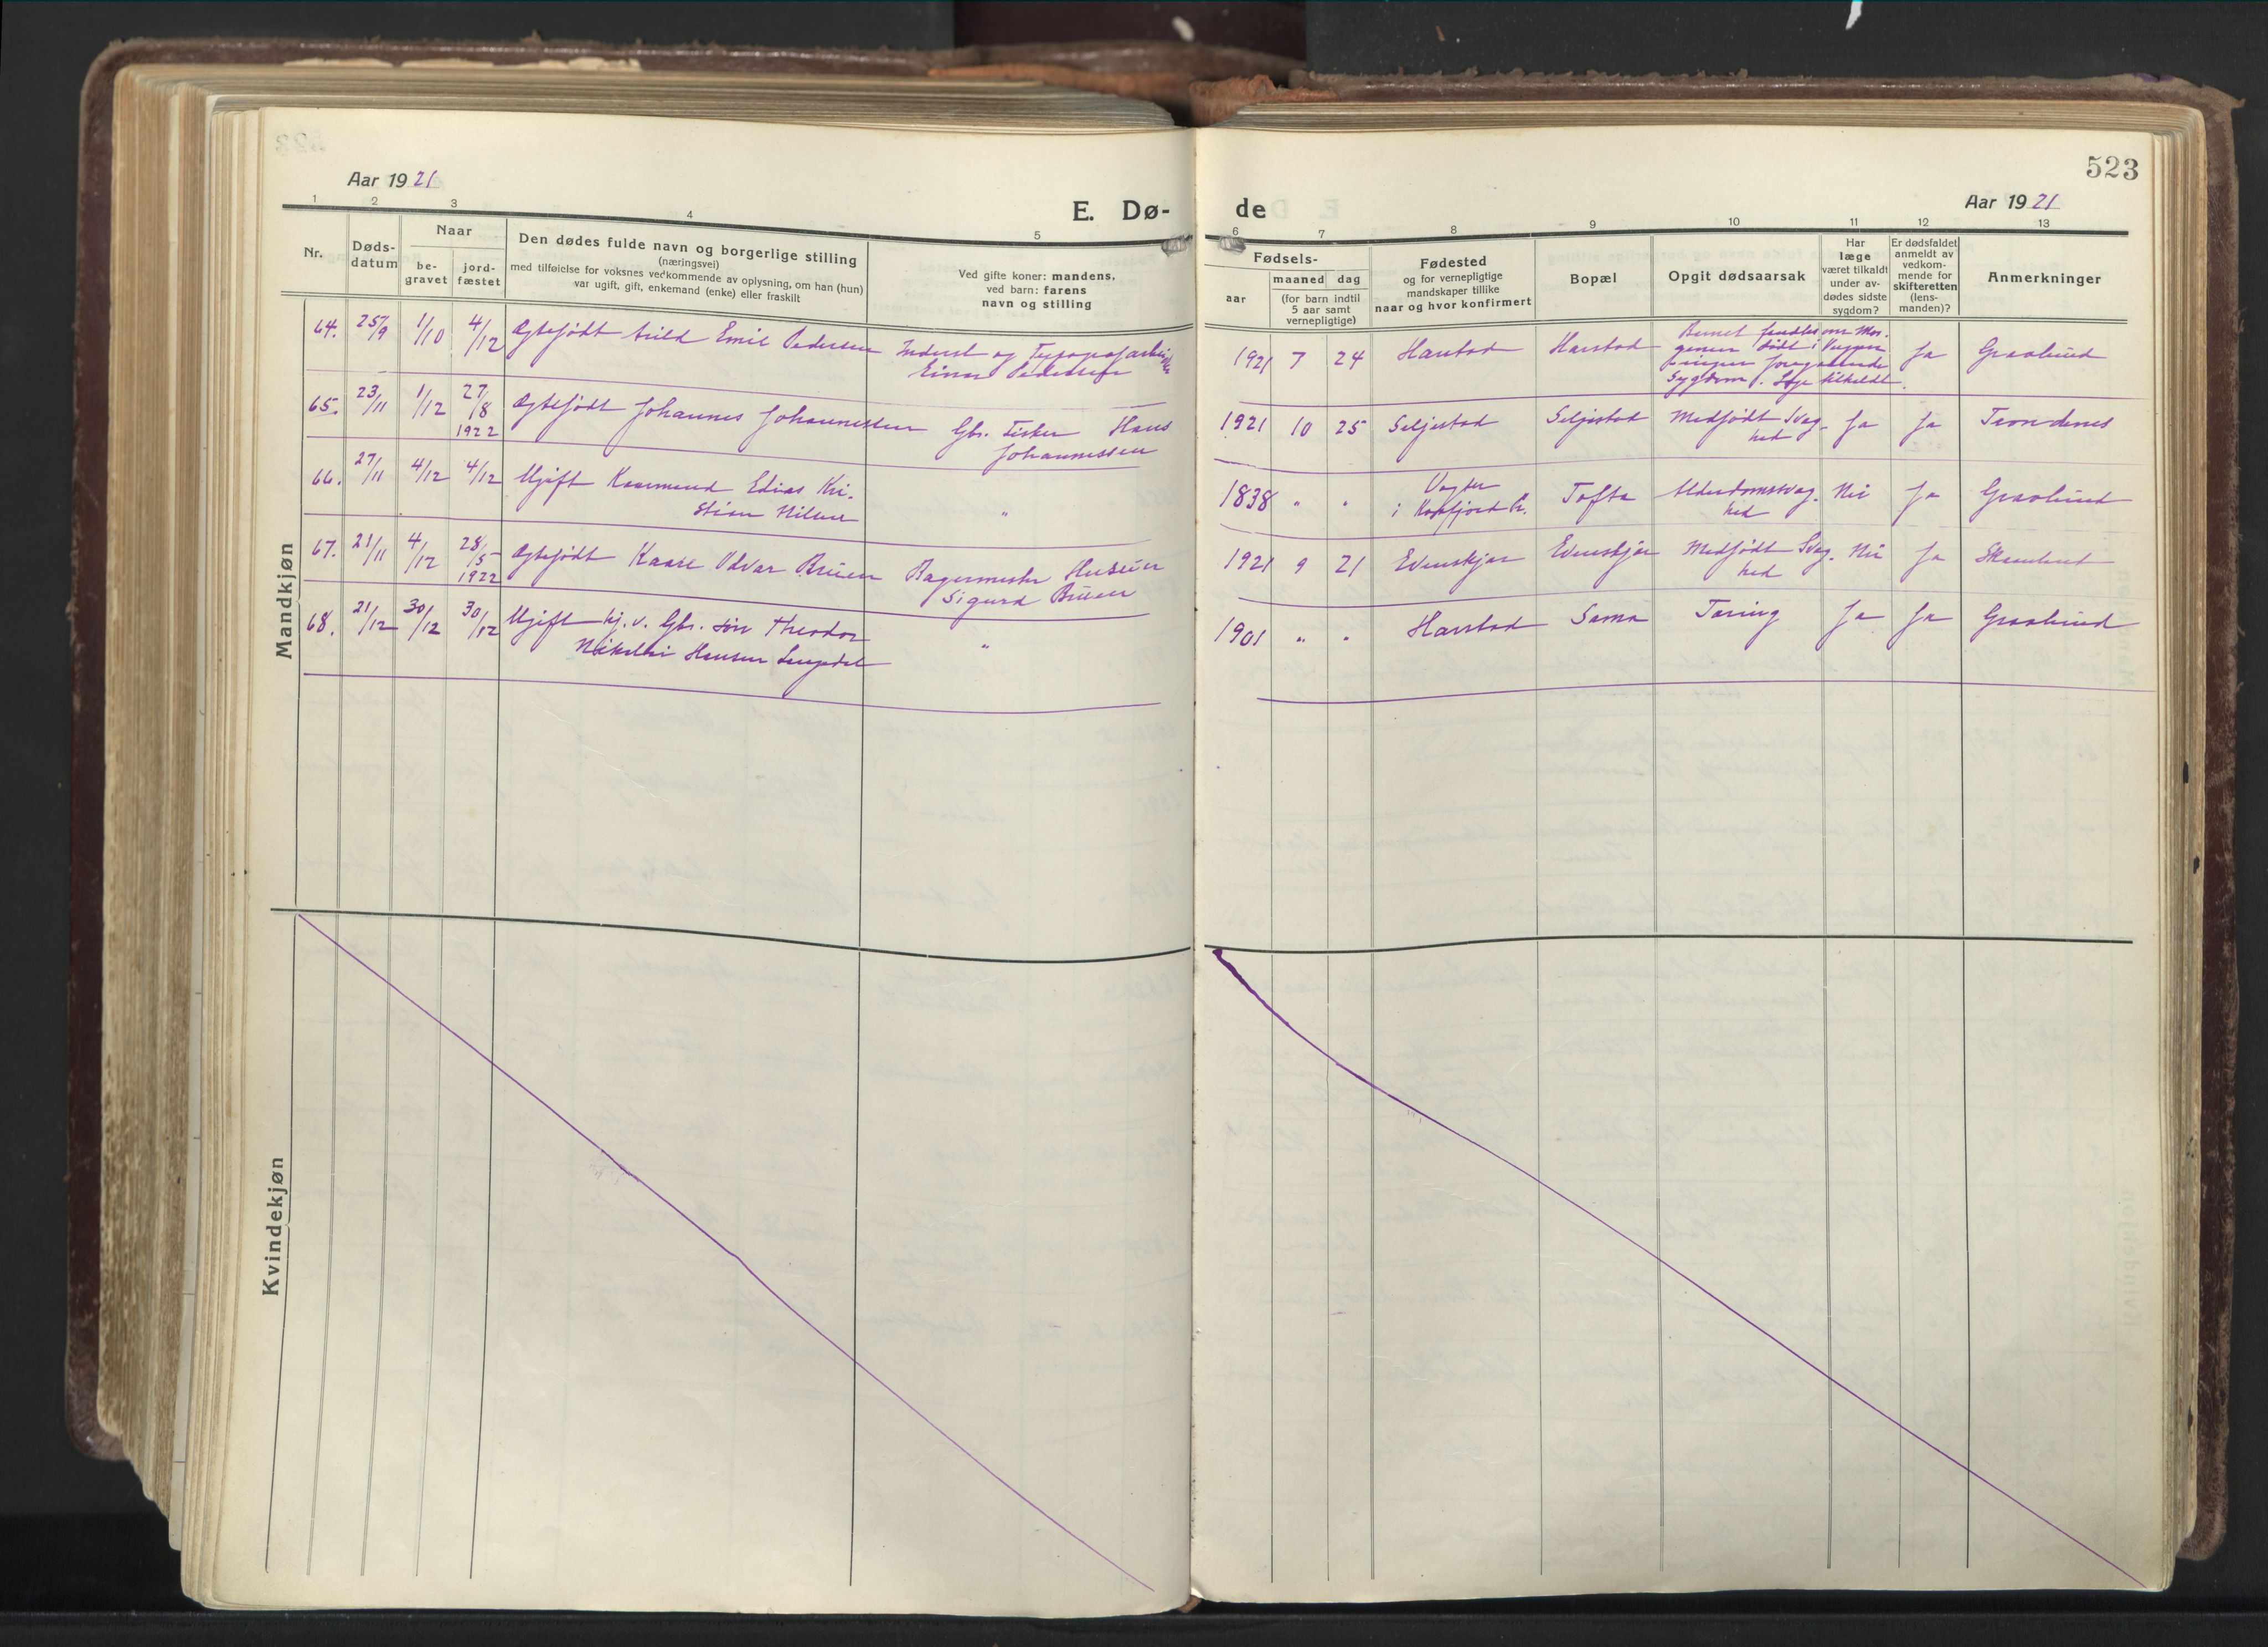 523
Aar 1921
Aar 1921
E. Dø-
de
1 2 3 4 5 6 7 8 9 10 11 12 13
Nr.
Døds-
datum
Naar
be-
gravet
jord-
fæstet
Den dødes fulde navn og borgerlige stilling
(næringsvei)
med tilføielse for voksnes vedkommende av oplysning, om han (hun)
var ugift, gift, enkemand (enke) eller fraskilt
Ved gifte koner: mandens,
ved barn: farens
navn og stilling
Fødsels-
aar
maaned dag
(for barn indtil
5 aar samt
vernepligtige)
Fødested
og for vernepligtige
mandskaper tillike
naar og hvor konfirmert
Bopæl
Opgit dødsaarsak
Har
læge
været tilkaldt
under av-
dødes sidste
sygdom?
Er dødsfaldet
anmeldt av
vedkom-
mende for
skifteretten
(lens-
manden)?
Anmerkninger
Mandkjøn
64. 25/9 1/10 4/12 Ægtefødt Arild Emil Pedersen Inderst og
Einar Pedersen
1921 7 24 Harstad Harstad Barnet fandtes om Mor-
genen dødt i
foregaaende
Sygdom. Læge tilkaldt. Ja Graabund
65. 23/11 1/12 27/8 1922 Ægtefødt Johannes Johannessen Gbr. Fisker Hans
Johannessen
1921 10 25 Seljestad Seljestad Medfødt Svag-
hed Ja Ja Trondenes
66. 27/11 4/12 4/12 Ugift Edias Kri-
stian Nilsen "
1838 " " i Kvæfjord Tofta Alderdomssvag-
hed Nei Ja Graabund
67. 21/11 4/12 28/5 1922 Ægtefødt Kaare Odvar Bruen Bagermester
Sigurd Bruen
1921 9 21 Evenskjær Evenskjær Medfødt Svag-
hed Nei Ja
68. 21/12 30/12 30/12 Ugift hj. v. Gbr. søn Theodor
Nikolai Hansen
"
1901 " " Harstad Sama Tæring Ja Ja Graabund
Kvindekjøn